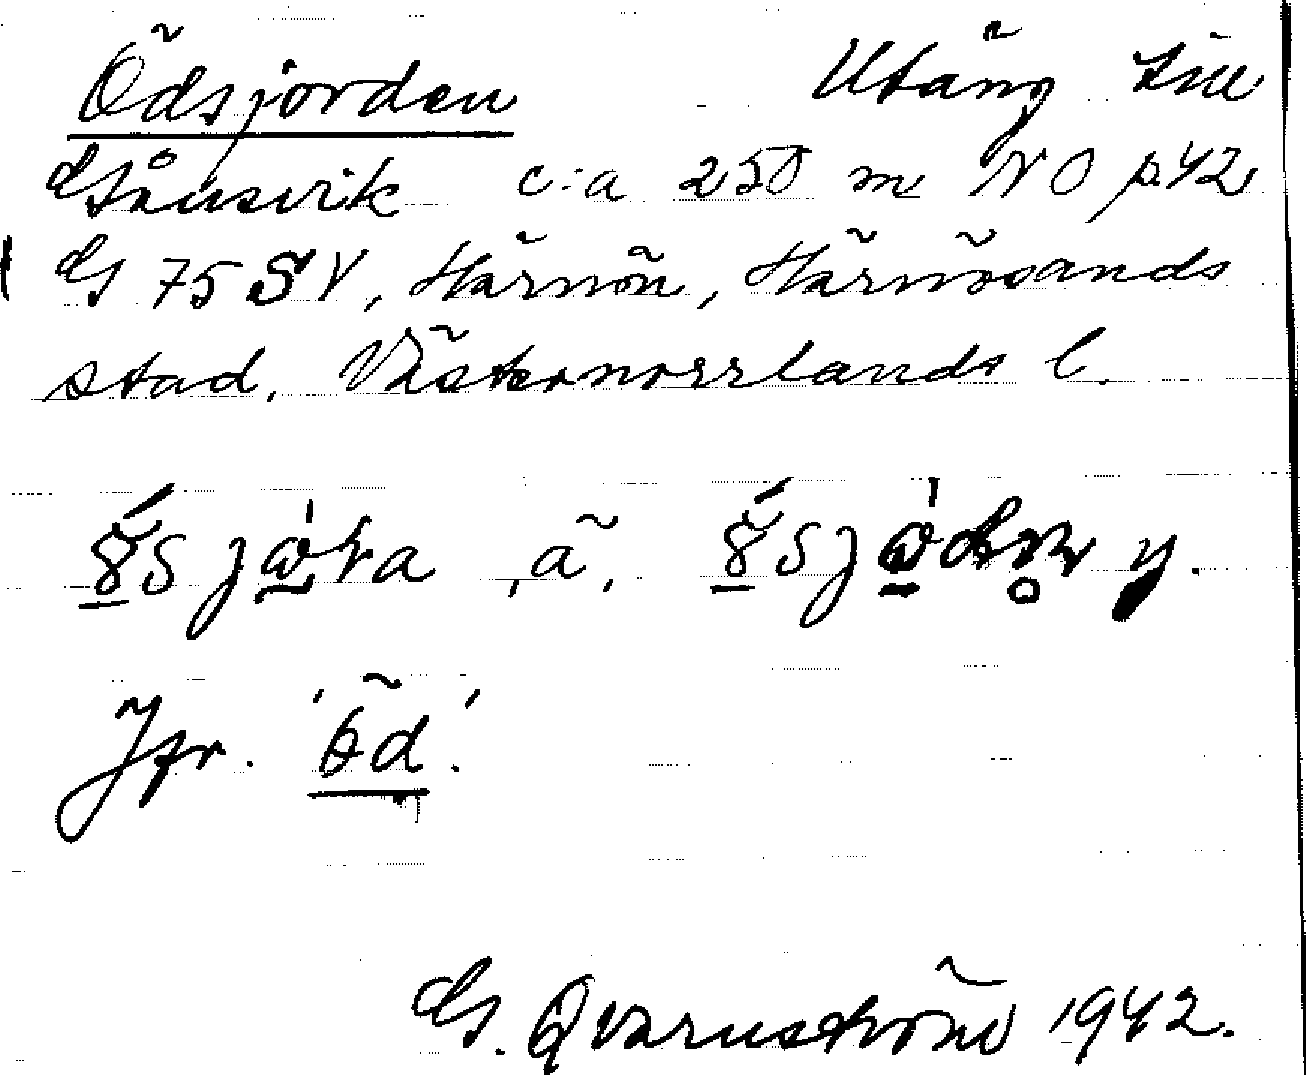 Ödsjorden Utäng till
Gånsvik c:a 250 m NO p.42
G 75 SV, Härnön, Härnösands
stad, Västernorrlands l.
Jfr. 'öd'.
G. Qvarnström 1942.